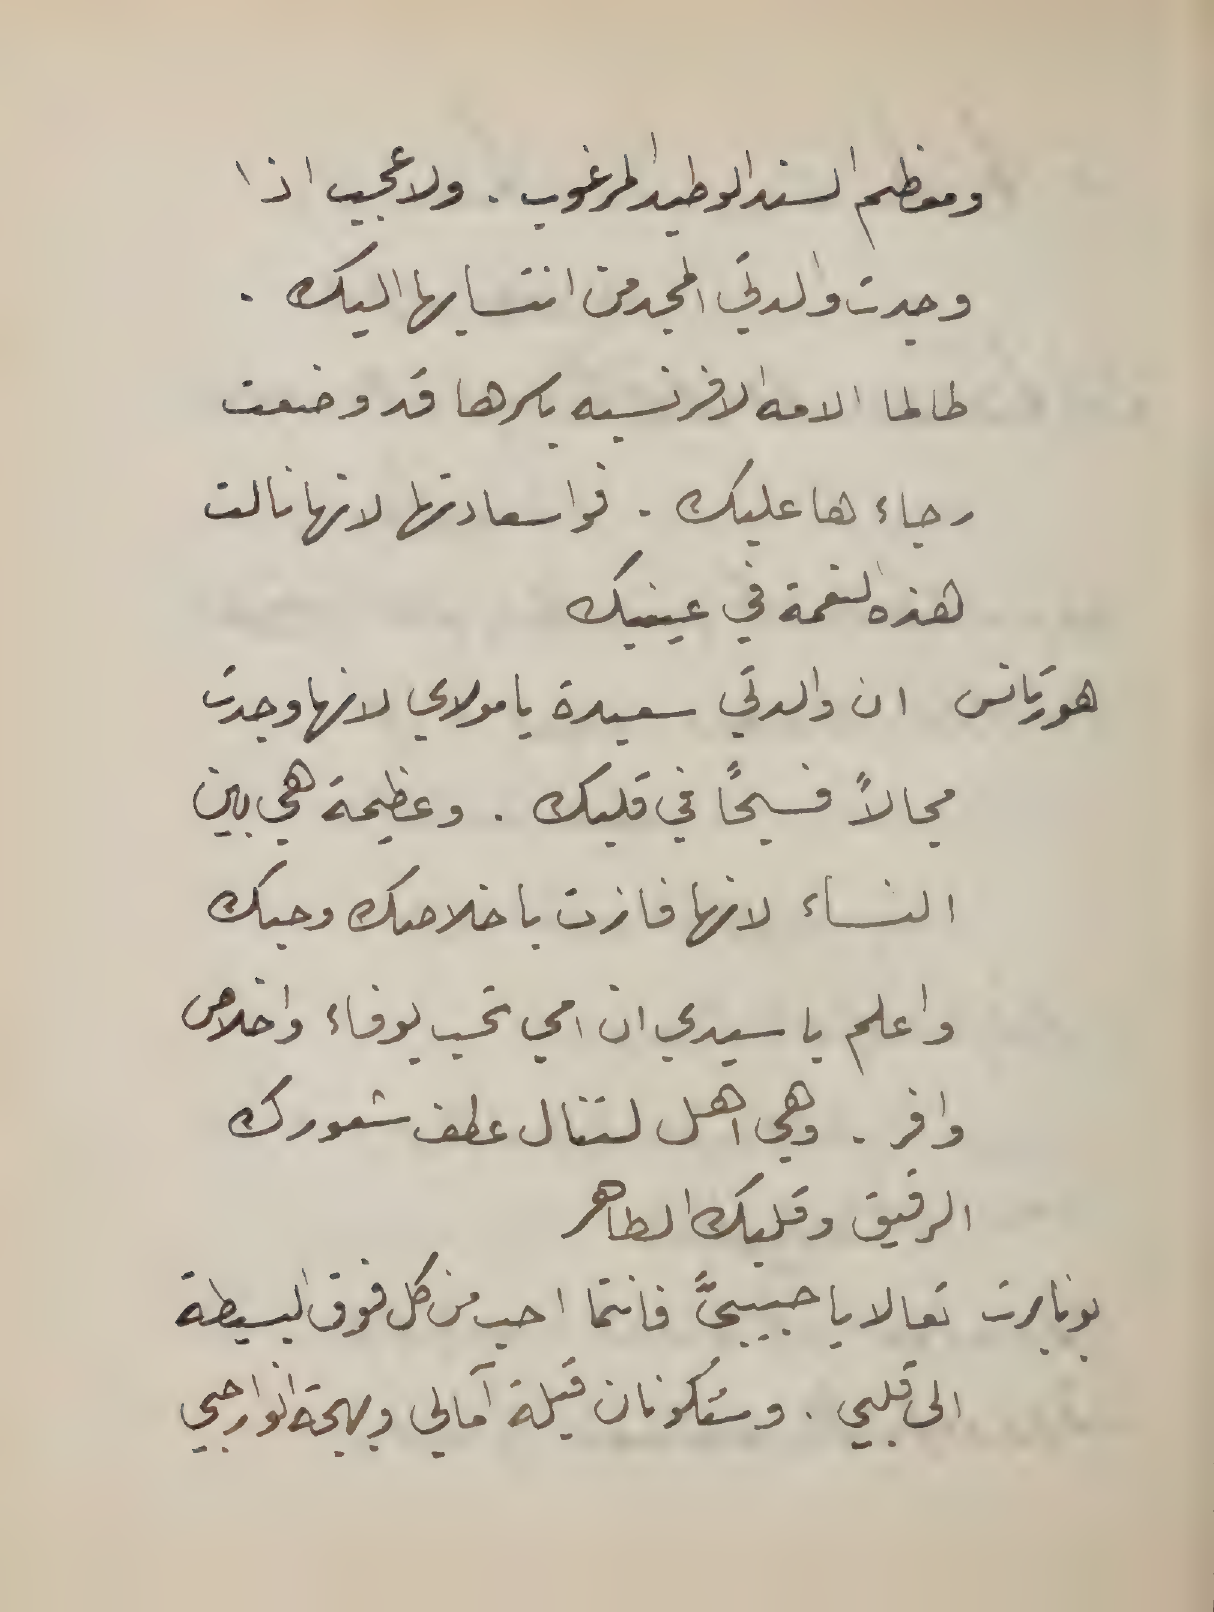 ومعظم السند الوطيد المرغوب . ولا عجيب اذا
وجدت والدتي المجد من انتسابها اليك .
طالما الامه الافرنسيه باسرها قد وضعت
رجاءها عليك . فوا سعادتها لانها نالت
هذه النعمة في عينيك
هورتانس ان والدتي سعيدة يا مولاي لانها وجدت
مجالاً فسيحًا في قلبك . وعظيمة هي بين
النساء لانها فازت باخلاصك وحبك
واعلم يا سيدي ان امي تحب بوفاء واخلاص
وافر . وهي اهل لتنال عطف شعورك
الرقيق وقلبك الطاهر
بونابرت تعالا يا حبيبيَّ فانتما احب من كل فوق البسيطة
الى قلبي . وستكونان قبلة آمالي وبهجة انوار حبي